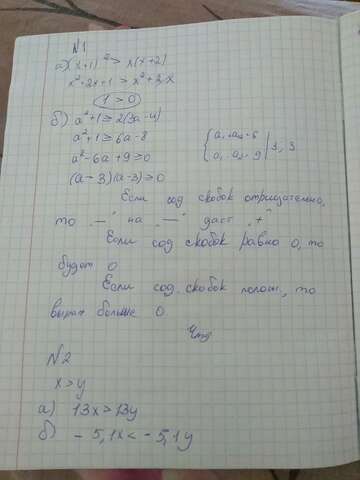 №1
а) (x+1)² > x(x+2)
x²+2x+1 > x²+2x
1 > 0
б) a²+1 ≥ 2(3a-4)
a²+1 ≥ 6a-8
a²-6a+9 ≥ 0
{a₁+a₂=6
a₁·a₂=9 | 3, 3
(a-3)(a-3) ≥ 0
Если сод скобок отрицательно,
то „—“ на „—“ даст „+“
Если сод скобок равно 0, то
будет 0
Если сод. скобок полож, то
выраж больше 0.
Чтд
№2
x > y
а) 13x > 13y
б) -5,1x < -5,1y